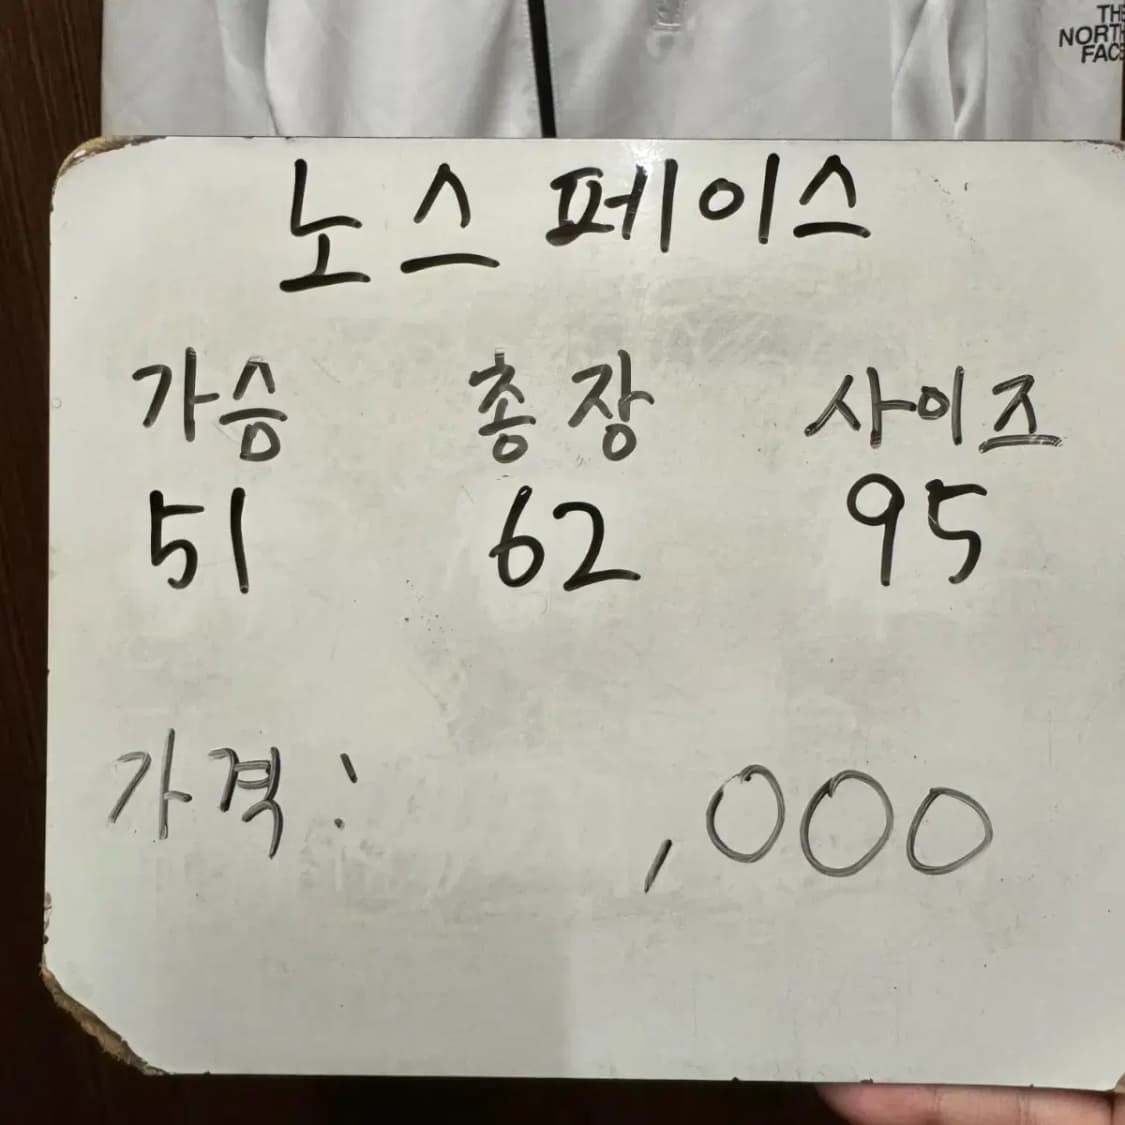 THE
NORTH
FACE
노스페이스
가슴 총장 사이즈
51 62 95
가격 : ,000